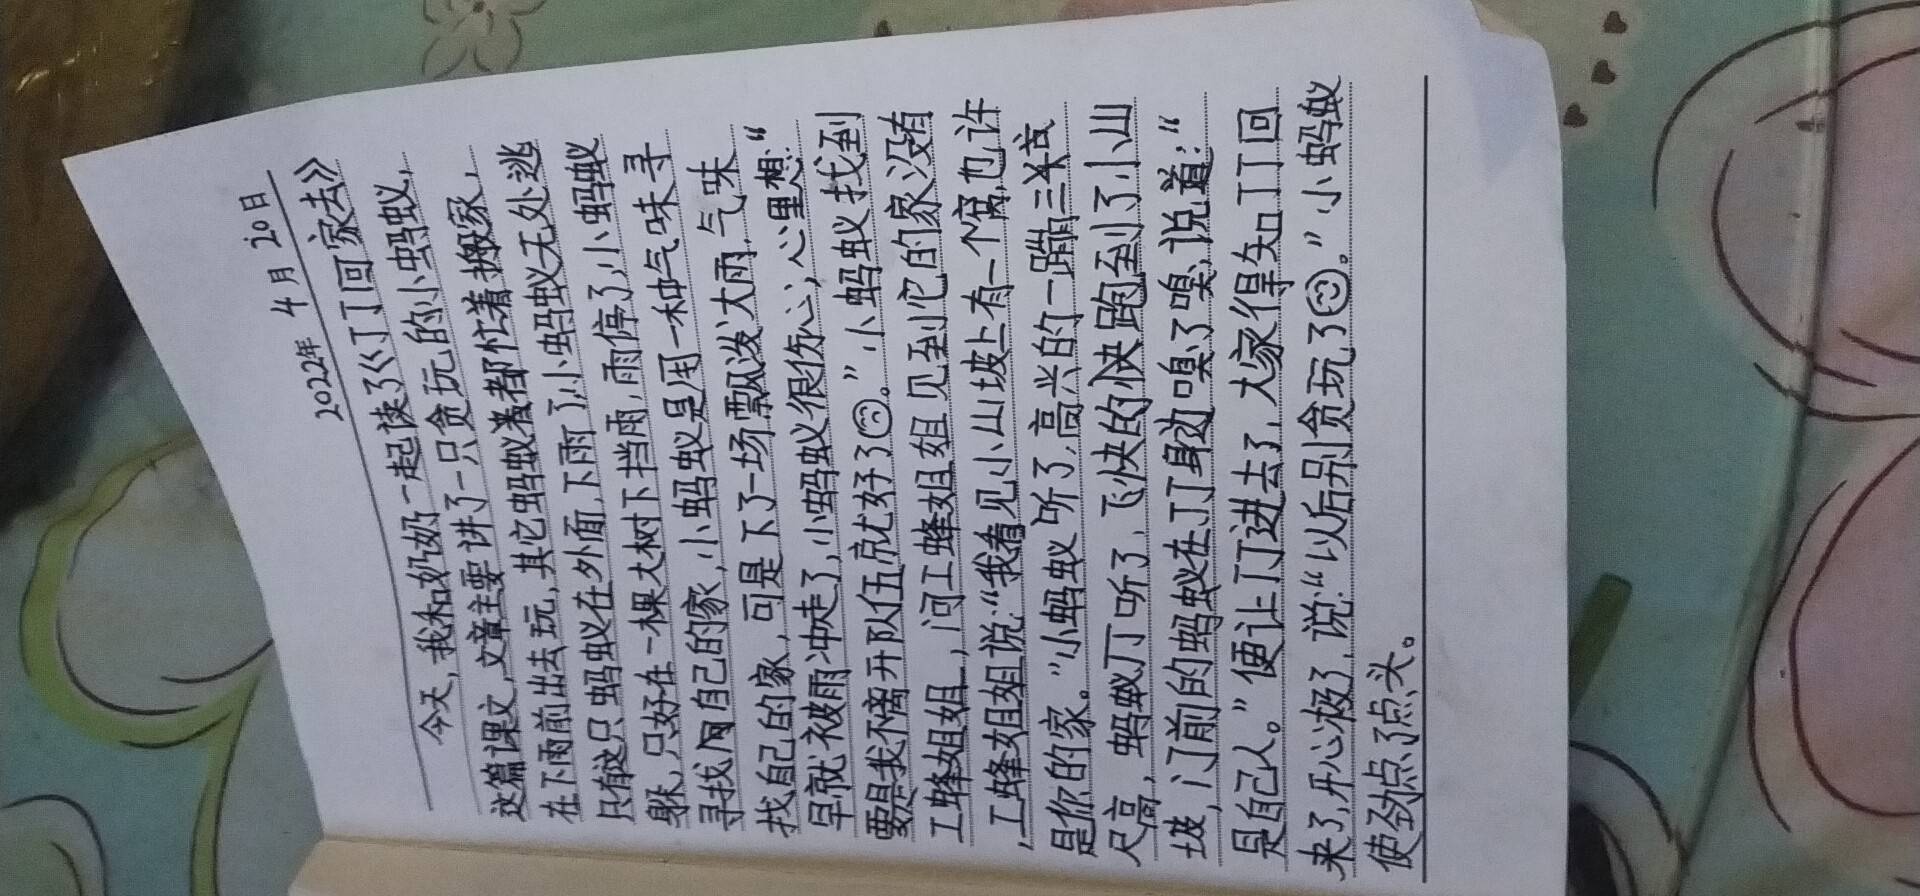 2022年 4月 20日
今天,我和奶奶一起读了《丁丁回家去》
这篇课文,文章主要讲了一只贪玩的小蚂蚁,
在下雨前出去玩,其它蚂蚁都忙着搬家,
只有这只蚂蚁在外面,下雨了,小蚂蚁无处逃
躲,只好在一棵大树下挡雨,雨停了,小蚂蚁
寻找自己的家,小蚂蚁是用一种气味寻
找自己的家,可是下了一场飘泼大雨,气味
早就被雨冲走了,小蚂蚁很伤心,心里想:“
要是我不离开队伍就好了☹。”小蚂蚁找到
工蜂姐姐,问工蜂姐姐见到它的家没有
,工蜂姐姐说:“我看见小山坡上有一个窝,也许
是你的家。”小蚂蚁听了,高兴的一蹦三丈
尺高,蚂蚁丁丁听了,飞快的快跑到了小山
坡,门前的蚂蚁在丁丁身边嗅了嗅,说道:“
是自己人。”便让丁丁进去了,大家得知丁丁回
来了,开心极了,说:“以后别贪玩了☺。”小蚂蚁
使劲点了点头。